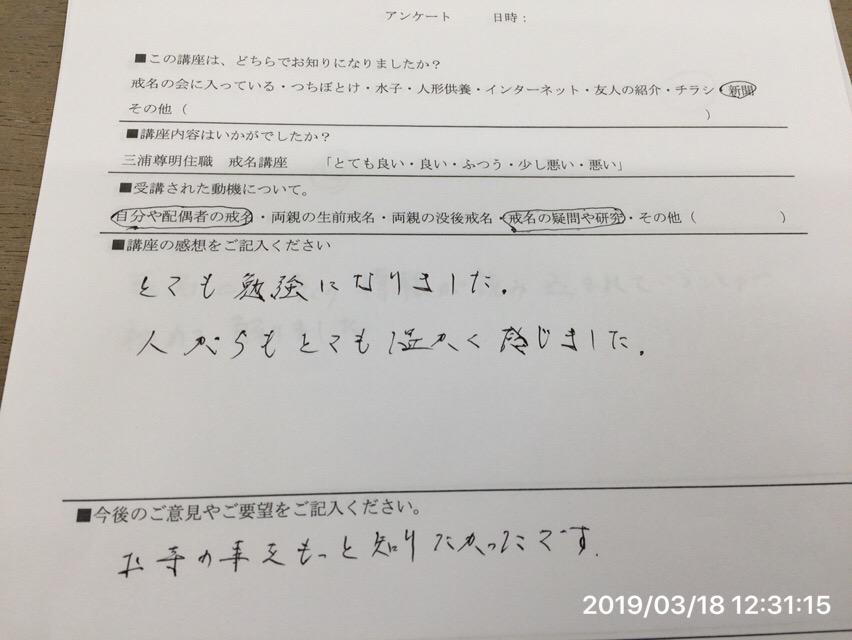 アンケート　　日時：
■この講座は、どちらでお知りになりましたか？
戒名の会に入っている・つちぼとけ・水子・人形供養・インターネット・友人の紹介・チラシ・新聞
その他（　　　　　　　　　　）
■講座内容はいかがでしたか？
三浦尊明住職　戒名講座　「とても良い・良い・ふつう・少し悪い・悪い」
■受講された動機について。
自分や配偶者の戒名・両親の生前戒名・両親の没後戒名・戒名の疑問や研究・その他（　　　　　）
■講座の感想をご記入ください
とても勉強になりました。
人がらもとても温かく感じました。
■今後のご意見やご要望をご記入ください。
お寺の事をもっと知りたかったです。
2019/03/18 12:31:15